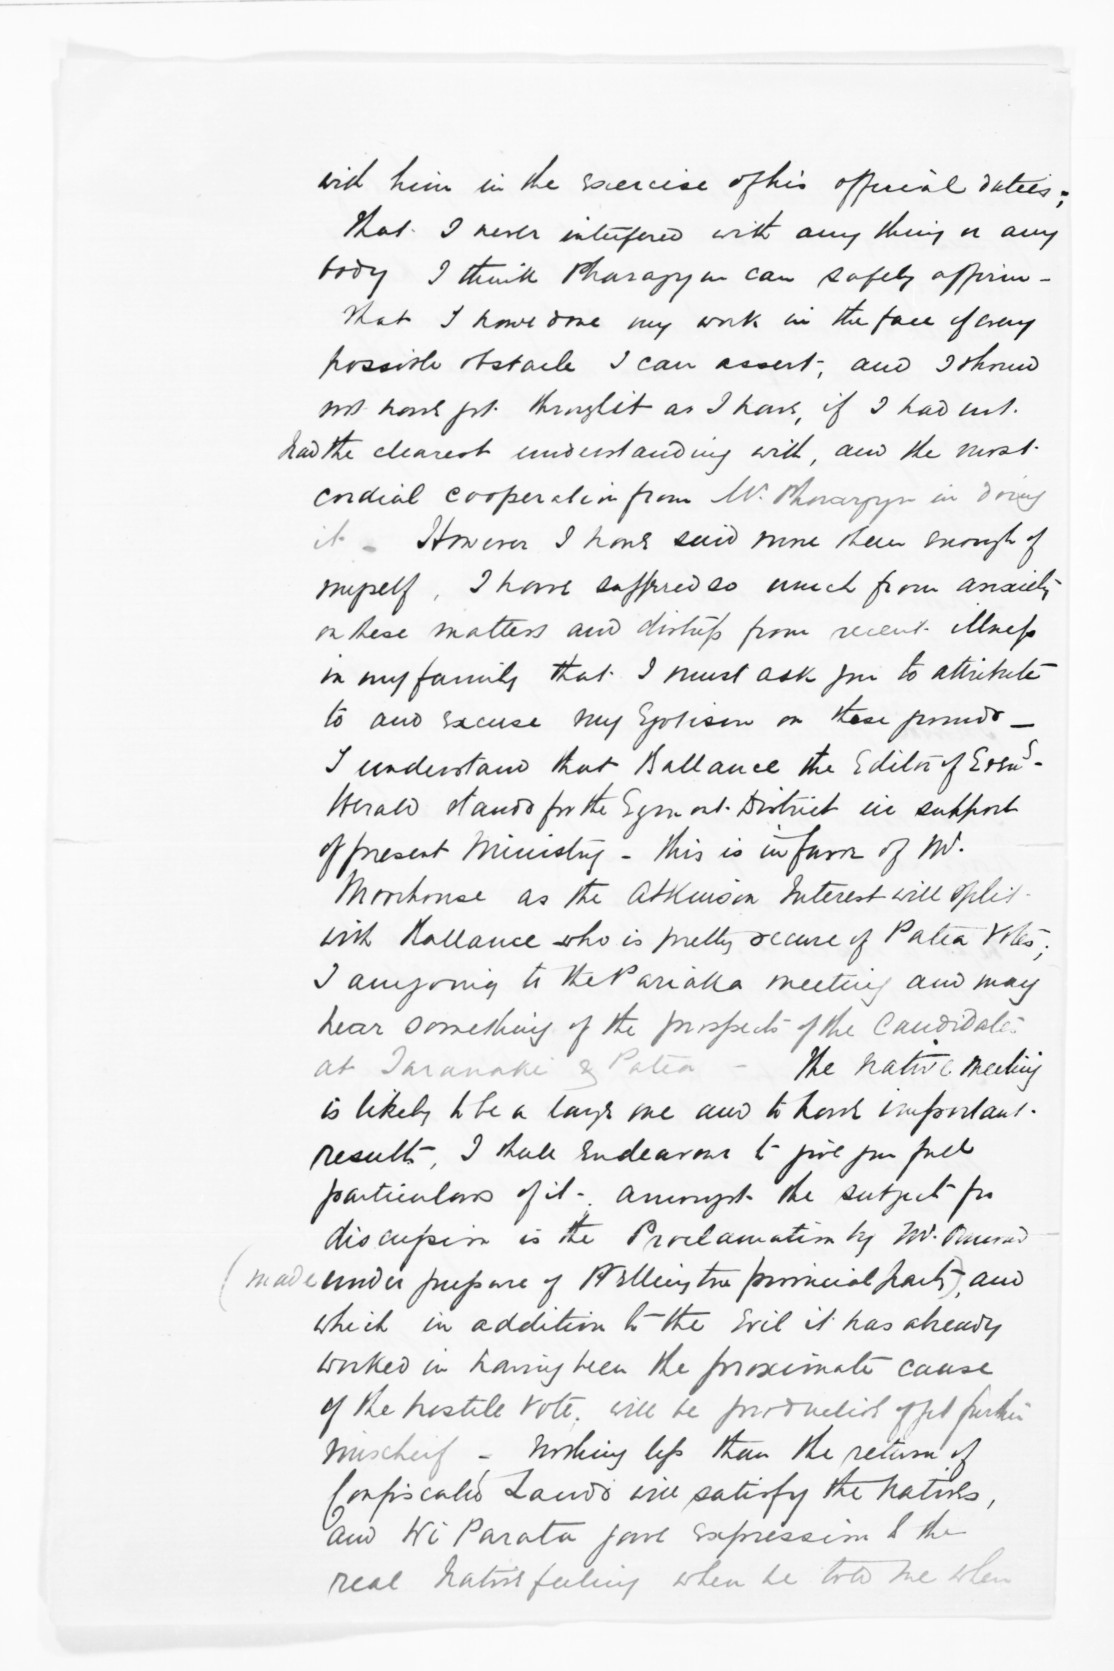 with him in the exercise of his official duties;
that I never interfered with any thing or any
body I think Pharazyn can safely affirm -
that I have done my work in the face of every
possible obstacle I can assert, and I should
not have got through it as I have, if I had not
had the clearest understanding with, and the most
cordial cooperation from Mr. Pharazyn in doing
it - However I have said more than enough of
myself, I have suffered so much from anxiety
on these matters and distress from recent illness
in my family that I must ask you to attribute
to and excuse my Egotism on these grounds -
I understand that Ballance the Editor of Eveng
Herald stands for the Egmont District in support
of present Ministry - this is in favor of Mr.
Moorhouse as the Atkinson Interest will split
with Ballance who is pretty secure of Patea Votes;
I am going to the Pariaka meeting and may
hear something of the prospects of the Candidates
at Taranaki & Patea - The native meeting
is likely to be a large one and to have important
results, I shall endeavour to give you full
particulars of it -. Amongst the subjects for
discussion is the Proclamation by Mr.
(made under pressure of Wellington provincial party), and
which in addition to the Evil it has already
worked in having been the proximate cause
of the hostile Vote, will be productive of yet further
mischief - Nothing less than the return of
Confiscated Lands will satisfy the Natives,
and Wi Parata gave expression to the
real Native feeling when he told me when